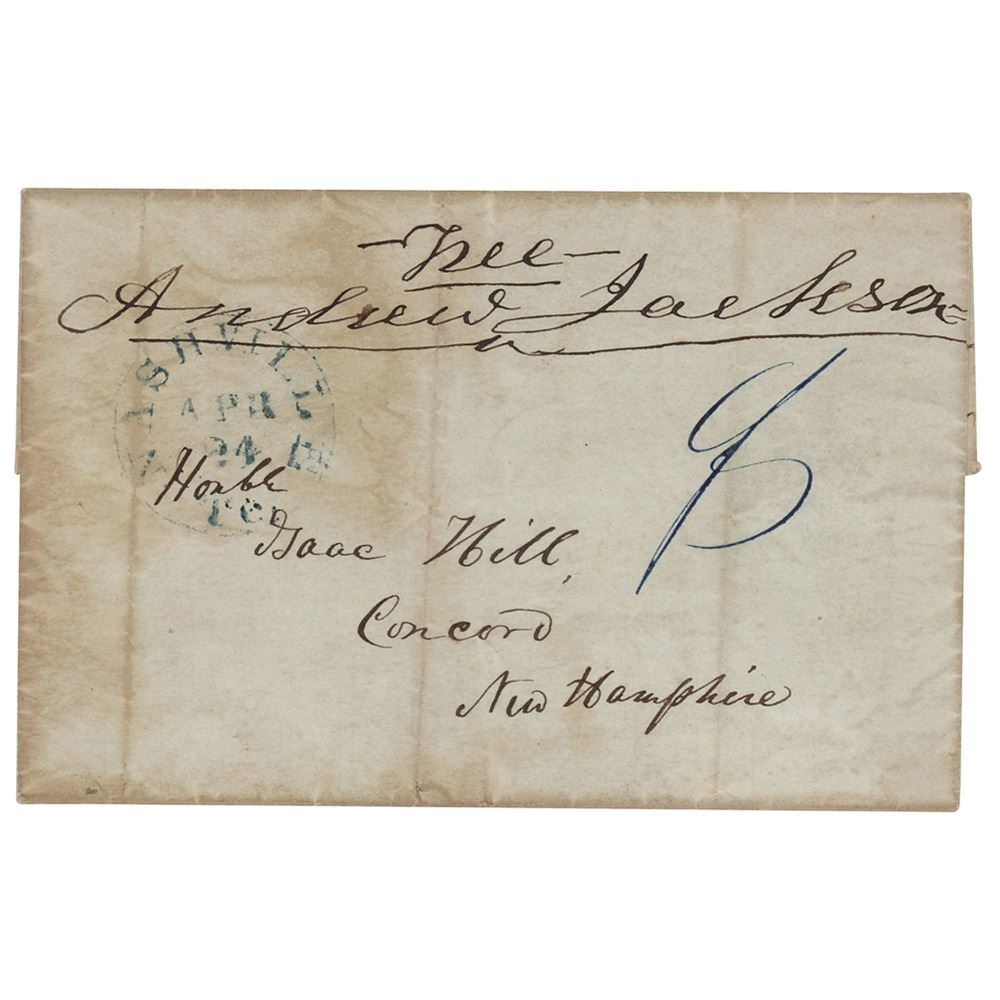 - Free -
Andrew Jackson
NASHVILLE
APR
24
Te
Honble
Isaac Hill,
Concord
New Hampshire